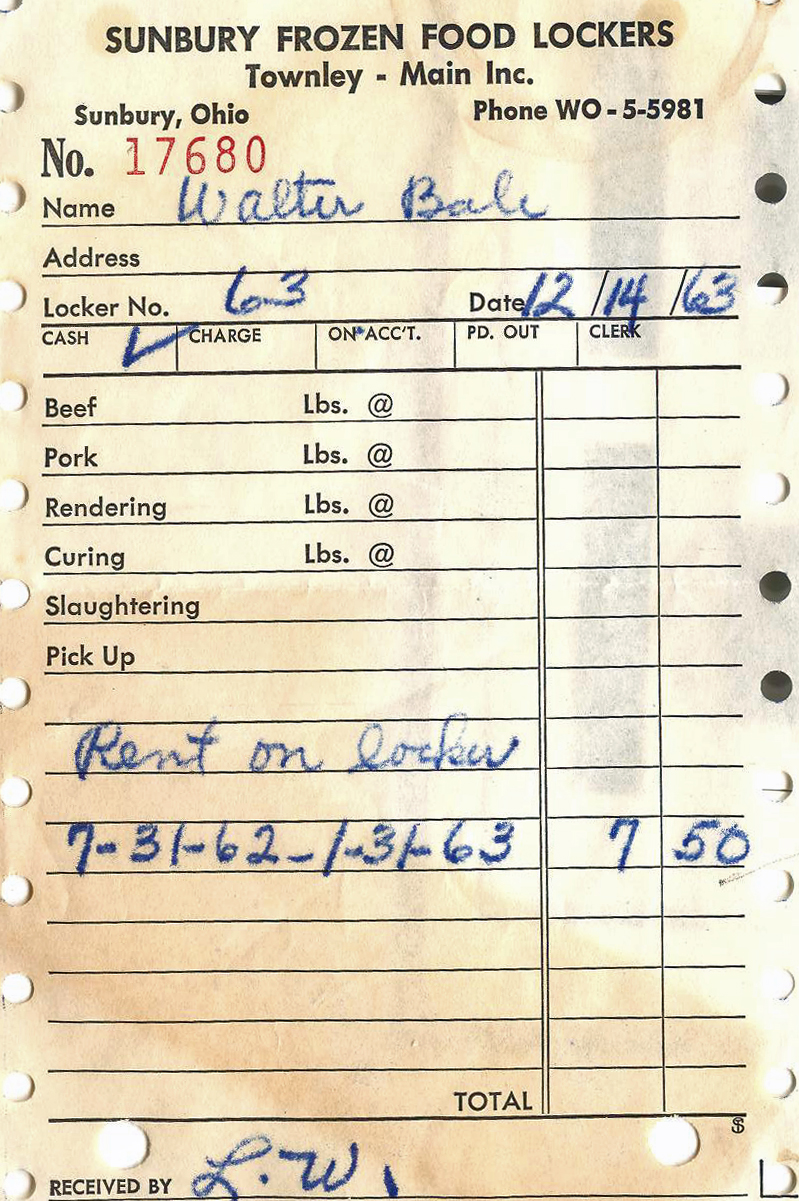 SUNBURY FROZEN FOOD LOCKERS
Townley - Main Inc.
Sunbury, Ohio Phone WO - 5-5981
No. 17680
Name Walter Bale
Address
Locker No. 63 Date 12/14/63
CASH ✓ CHARGE ON ACC'T. PD. OUT CLERK
Beef Lbs. @
Pork Lbs. @
Rendering Lbs. @
Curing Lbs. @
Slaughtering
Pick Up
Rent on locker
7-31-62-1-31-63 7 50
TOTAL
RECEIVED BY L.W.